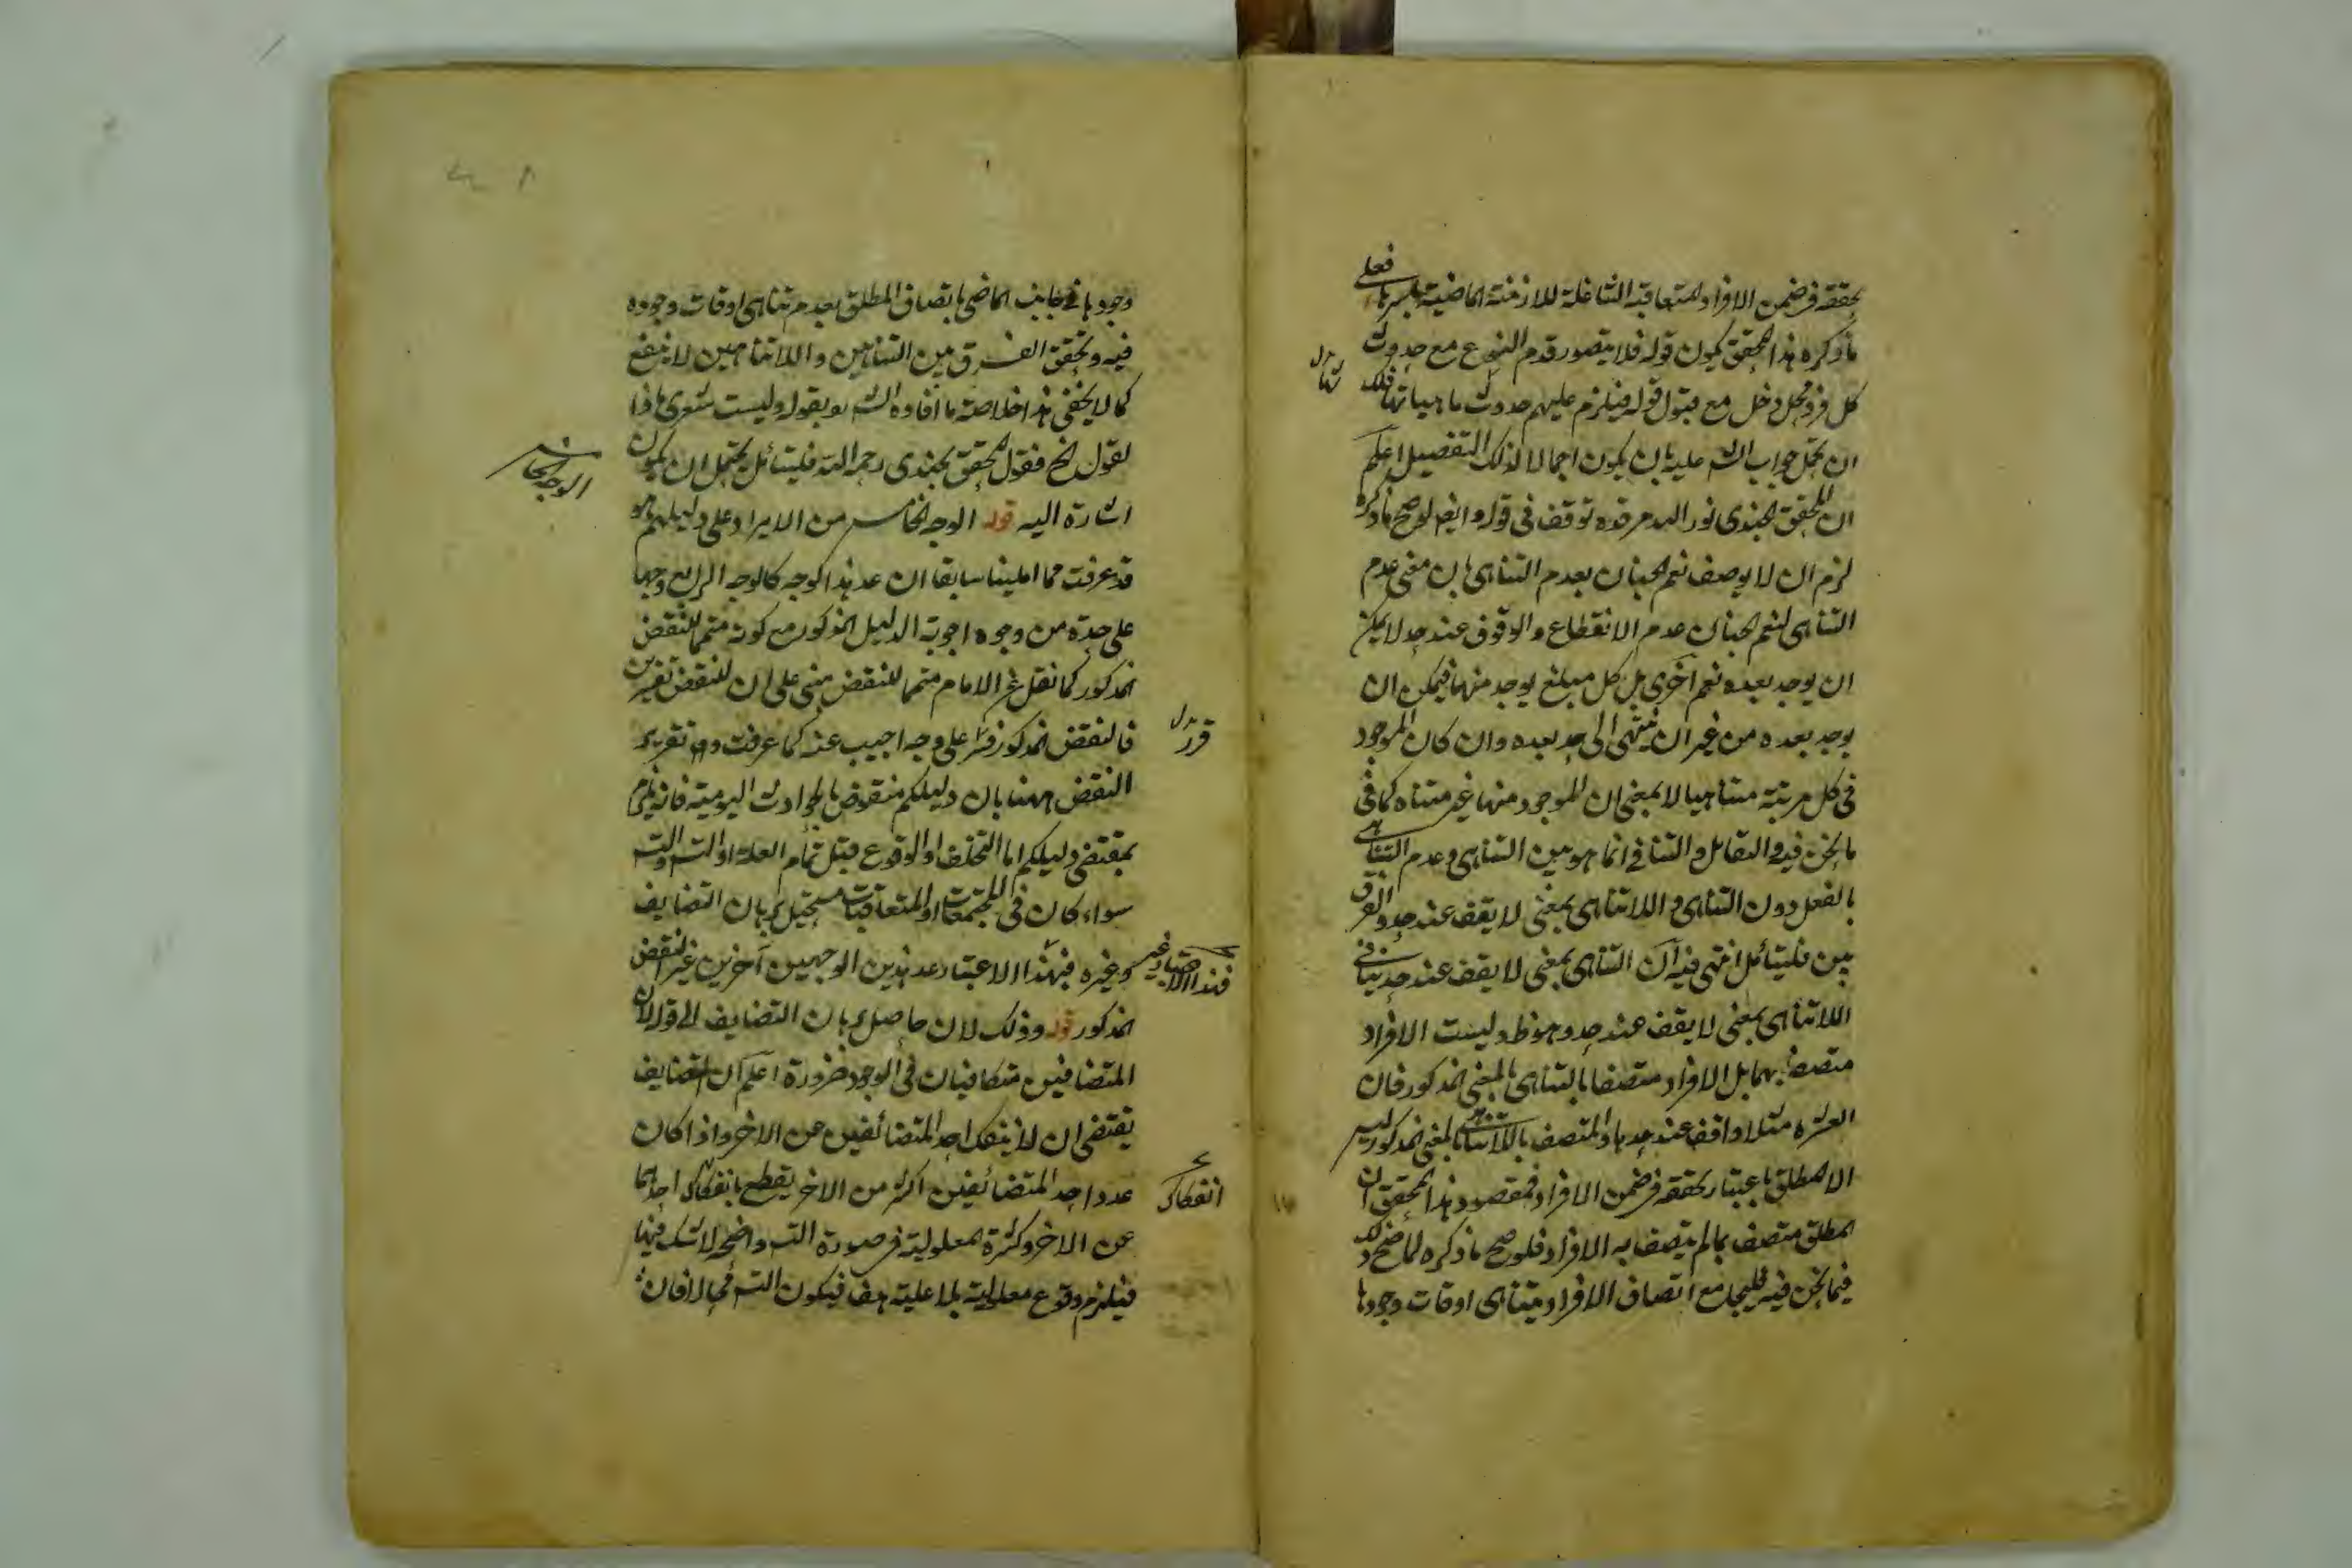 بتحققه فى ضمن الافراد المتعاقبة الشاغلة للازمنة الماضية باسرها فعلى
ما ذكره هذا المحقق يكون قوله فلا يتصور قدم النوع مع حدوث
كل فرد محل دخل مع قبول قوله فيلزم عليهم حدوث ماهياتها فلك
ان تجعل جواب الش عليه بان يكون اجمالا لذلك التفصيل اعلم
ان المحقق الجندى نور الله مرقده توقف فى قوله وايضا لو صح ما ذكره
لزم ان لا يوصف نعم الجنان بعدم التناهى بان معنى عدم
التناهى لنعم الجنان عدم الانقطاع والوقوف عند حد لا يمكن
ان يوجد بعده نعم اخرى بل كل مبلغ يوجد منها فيمكن ان
يوجد بعده من غير ان ينتهى الى حد بعده وان كان الموجود
فى كل مرتبة متناهيا لا بمعنى ان الموجود منها غير متناه كما فى
ما نحن فيه والتقابل والتنافى انما هو بين التناهى وعدم التناهى
بالفعل دون التناهى واللاتناهى بمعنى لا يقف عند حد والفرق
بين فليتأمل انتهى فيه ان التناهى بمعنى لا يقف عند حد ينافى
اللاتناهى بمعنى لا يقف عند حد وهو ظ وليست الافراد
متصفة بهما بل الافراد متصفا بالتناهى بالمعنى المذكور فان
العشرة مثلا واقف عند حدها والمتصف باللاتناهى بالمعنى المذكور ليس
الا المطلق باعتبار تحققه فى ضمن الافراد فمقصود هذا المحقق ان
المطلق متصف بما لم يتصف به الافراد فلو صح ما ذكره لما صح ذلك
فيما نحن فيه فليجامع اتصاف الافراد بتناهى اوقات وجودها
وجودها فى جانب الماضى باتصاف المطلق بعدم تناهى اوقات وجوده
فيه وتحقق الفرق بين التناهين واللاتناهين لا ينفع
كما لا يخفى هذا خلاصة ما افاده الش بقوله وليست شعرى ماذا
يقول الخ فقول المحقق الجندى رحمه الله فليتأمل يحتمل ان يكون
اشارة اليه قوله الوجه الخامس من الايراد على دليلهم هو
الوجه الخامس
قد عرفت مما املينا سابقا ان عد هذا الوجه كالوجه الرابع وجها
على حدة من وجوه اجوبة الدليل المذكور مع كونه متمما للنقض
المذكور كما نقل عن الامام متمما للنقض مبنى على ان للنقض تقريرين
فالنقض المذكور قرر على وجه اجيب عنه كما عرفت وهو تقرير
النقض ههنا بان دليلكم منقوض بالحوادث اليومية فانه يلزم
بمقتضى دليلكم اما التخلف او الوقوع قبل تمام العلة او التس والتس
سواء كان فى المجتمعات او المتعاقبات مستحيل ببرهان التضايف
وغيره فبهذا الاعتبار عد هذين الوجهين آخرين غير النقض
المذكور قوله وذلك لان حاصل برهان التضايف الى قوله لان
المتضائفين متكافيان فى الوجود ضرورة اعلم ان التضايف
يقتضى ان لا ينفك احد المتضائفين عن الاخر واذا كان
عدد احد المتضائفين اكثر من الاخر يقطع بانفكاك احدهما
انفكاك
عن الاخر وكثرة المعلولية فى صورة التس واضحة لا شك فيها
فيلزم وقوع معلولية بلا علية هف فيكون التس محالا فان